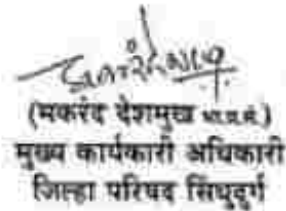 (मकरंद देशमुख भा.प्र.से.)
मुख्य कार्यकारी अधिकारी
जिल्हा परिषद सिंधुदुर्ग